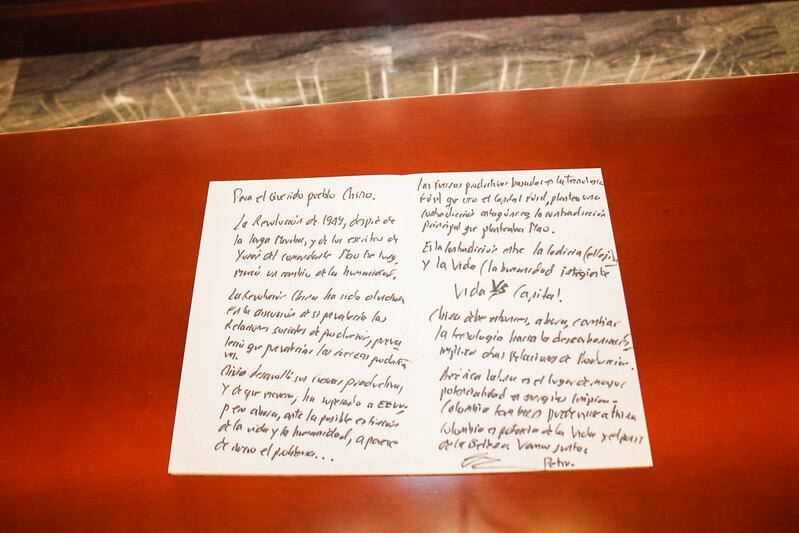 Para el querido pueblo Chino.
La Revolución de 1949, después de
la larga Marcha, y de los escritos de
Yunán del comandante Mao Tse Tung,
marcó un cambio de la humanidad.
La Revolución China ha sido
en la discusión de si prevalecían las
Relaciones sociales de producción,
que prevalecían las fuerzas productivas.
China desarrolló sus fuerzas productivas,
y de que manera, ha superado a EEUU,
pero ahora, ante la posible extinción
de la vida y la humanidad, aparece
de nuevo el problema...
Las fuerzas productivas basadas en la tecnología
fósil que usa el capital fósil, plantea una
contradicción antagónica, la contradicción
principal que planteaba Mao.
Es la contradicción entre la codicia
y la Vida (la humanidad
Vida VS Capital!
China debe entonces, ahora, cambiar
la tecnología hacia la descarbonización
implica otras Relaciones de Producción.
América latina es el lugar de mayor
potencialidad en energías limpias.
Colombia también puede unirse a China
Colombia es potencia de la Vida y el país
de la Belleza. Vamos juntos
Petro.